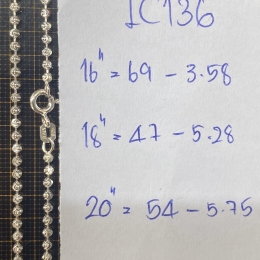 IC136
16" = 69 - 3.58
18" = 47 - 5.28
20" = 54 - 5.75